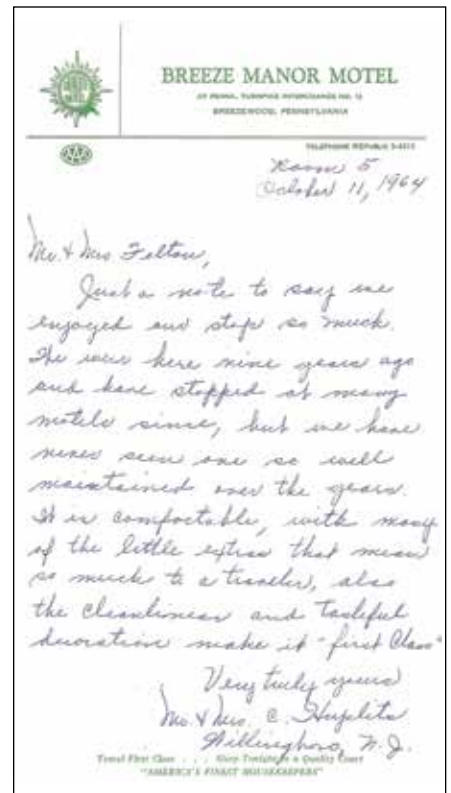 BREEZE MANOR MOTEL
AT PENNA. TURNPIKE INTERCHANGE NO. 12
BREEZEWOOD, PENNSYLVANIA
AAA
TELEPHONE REPUBLIC
Room 5
October 11, 1964
Mr. & Mrs. Felton,
Just a note to say we
enjoyed our stop so much.
We were here nine years ago
and have stopped at many
motels since, but we have
never seen one so well
maintained over the years.
It is comfortable, with many
of the little extras that mean
so much to a traveler, also
the cleanliness and tasteful
decoration make it "first Class"
Very truly yours
Mr. & Mrs. C.
Willingboro, N.J.
Travel First Class . . . Stop Tonight in a Quality Court
"AMERICA'S FINEST HOUSEKEEPERS"